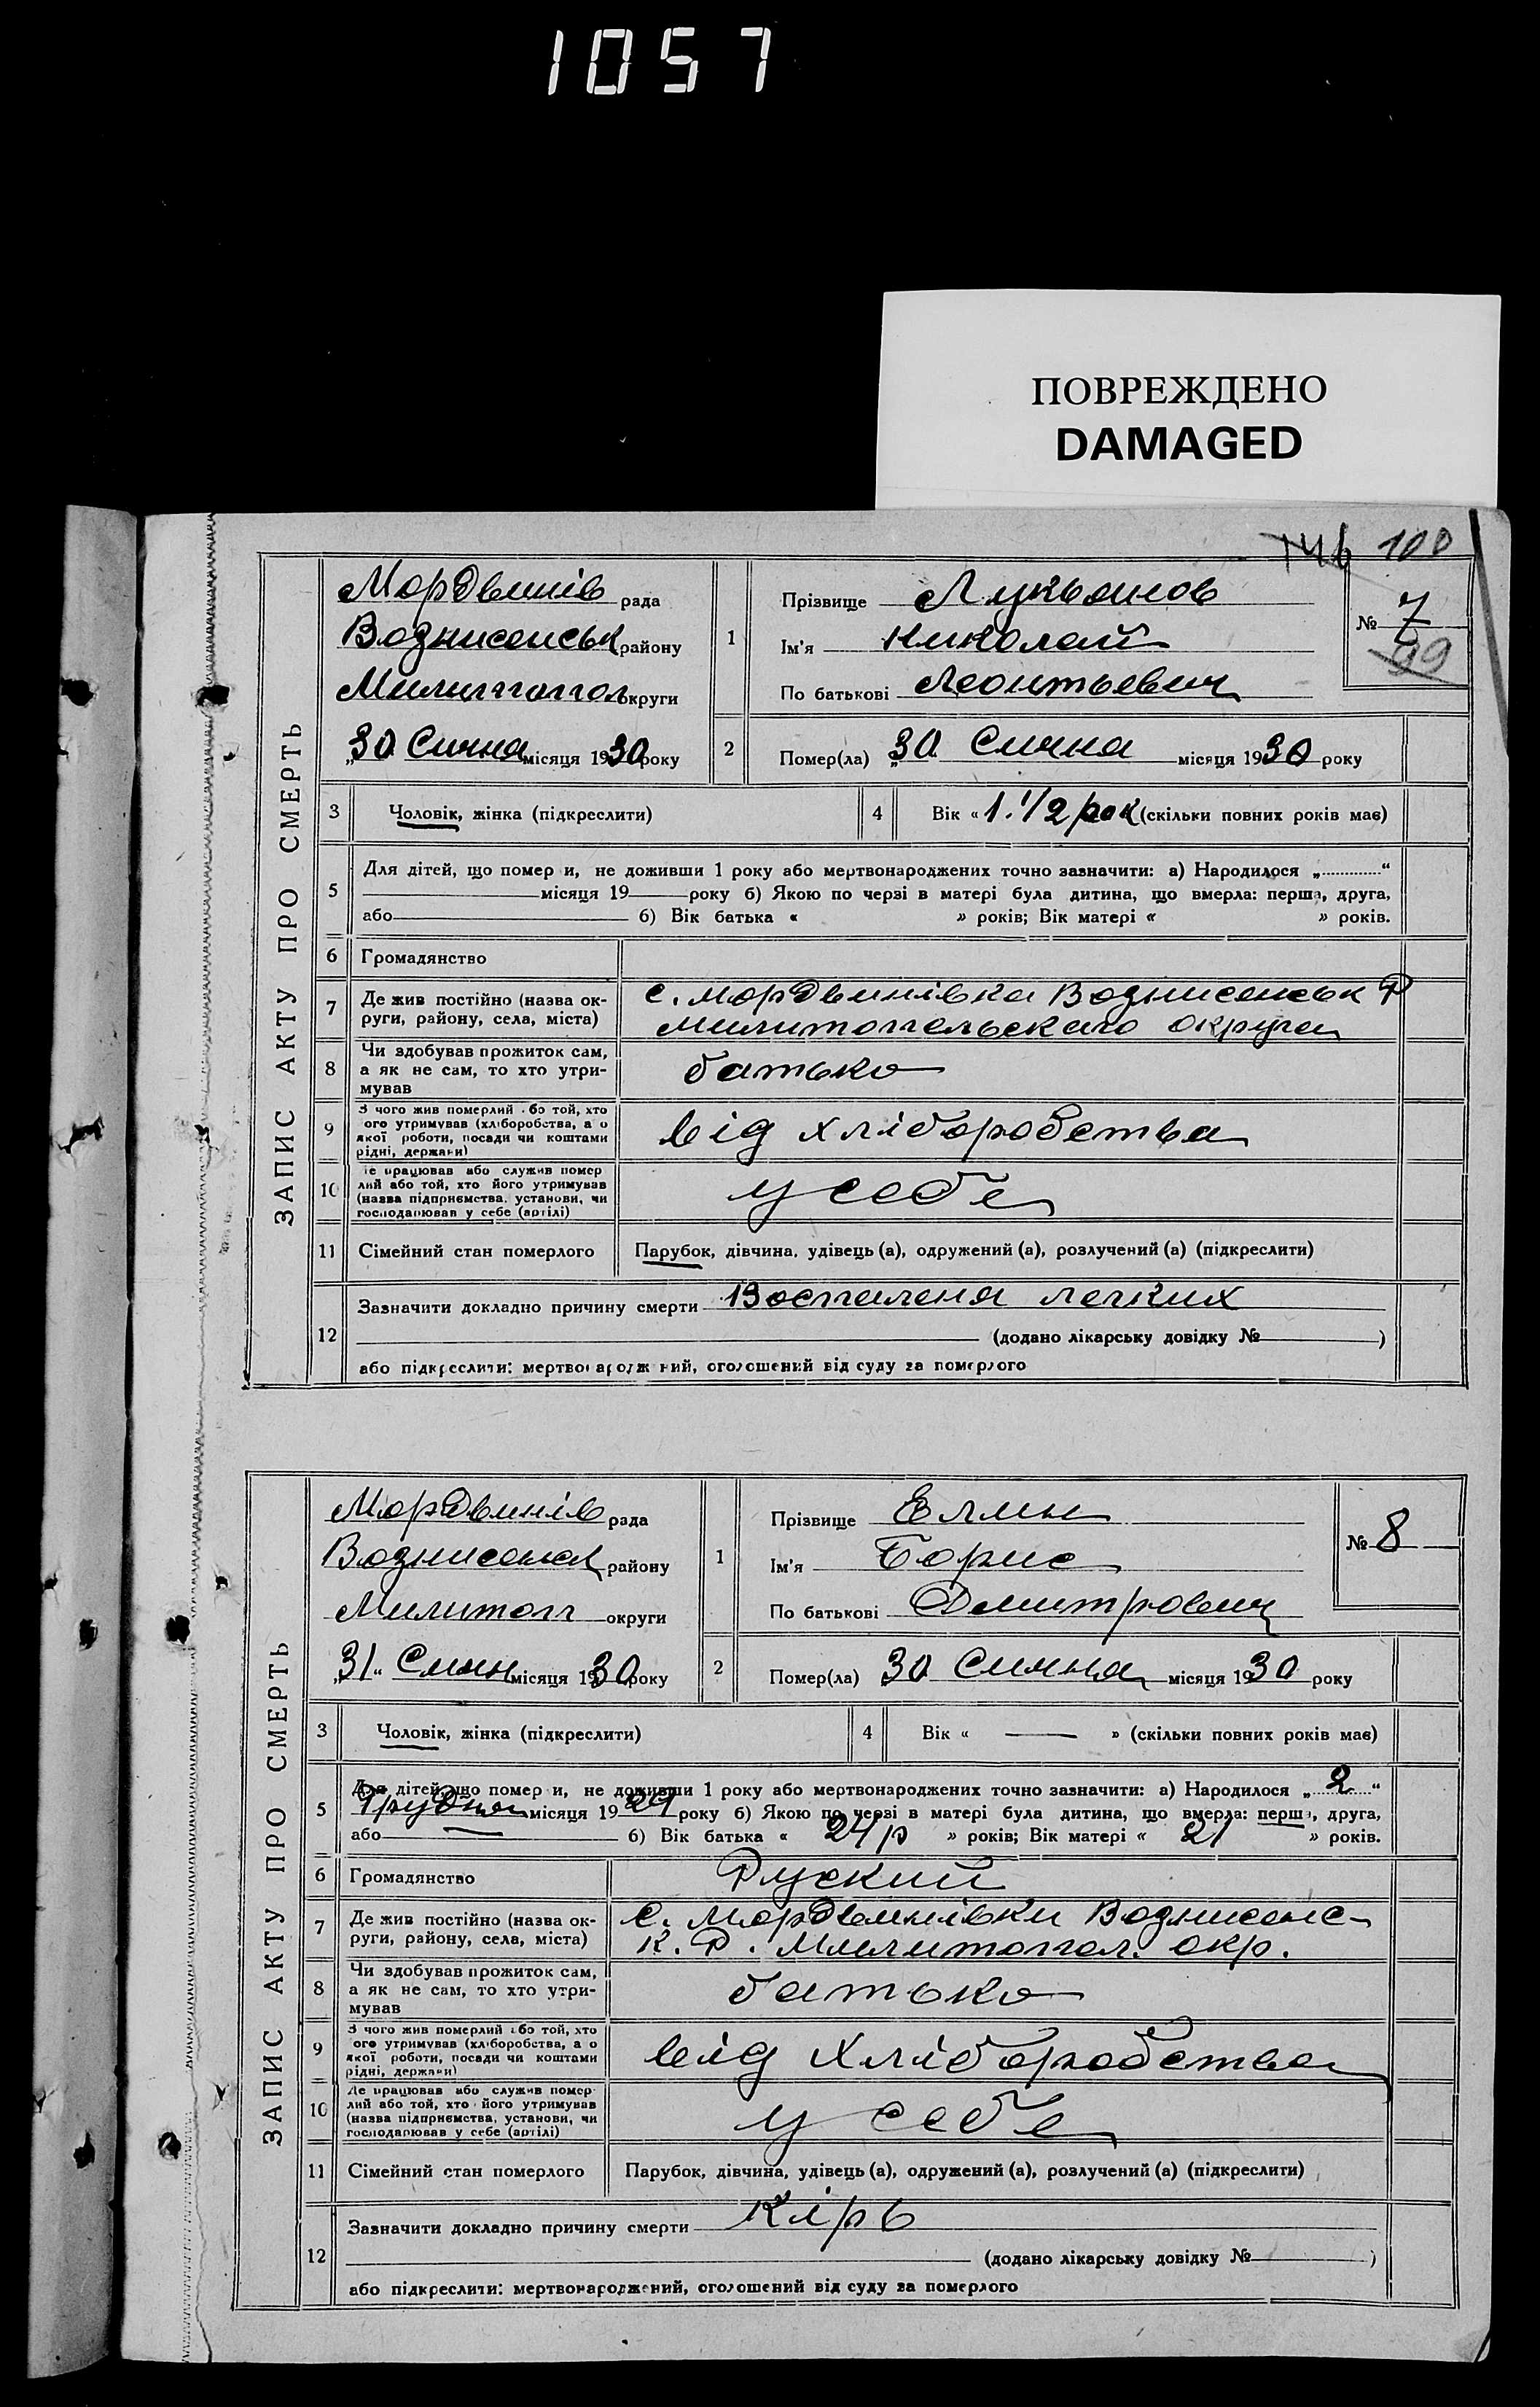 1057
ПОВРЕЖДЕНО
DAMAGED
100
ЗАПИС АКТУ ПРО СМЕРТЬ
Мордвинів рада
Вознисенськ району
Милитопол округи
„30 Сична місяця 1930 року
1 Прізвище Лукьянов
Ім'я Николай
По батькові Леонтьевич
№ 7
99
2 Помер(ла) „30 Сична місяця 1930 року
3 Чоловік, жінка (підкреслити)
4 Вік « 1.1/2 рок (скільки повних років має)
5 Для дітей, що помер и, не доживши 1 року або мертвонароджених точно зазначити: а) Народилося „ “
місяця 19 року б) Якою по черзі в матері була дитина, що вмерла: перша, друга,
або б) Вік батька « » років; Вік матері « » років.
6 Громадянство
7 Де жив постійно (назва ок-
руги, району, села, міста)
с. Мордвинівка Вознисенськ Р
Милитопольского округа
8 Чи здобував прожиток сам,
а як не сам, то хто утри-
мував
батько
9 З чого жив померлий або той, хто
ого утримував (хліборобства, а о
якої роботи, посади чи коштами
рідні, держави)
від хліборобства
10 Де працював або служив помер
лий або той, хто його утримував
(назва підприємства, установи, чи
господарював у себе (артілі)
у себе
11 Сімейний стан померлого Парубок, дівчина, удівець (а), одружений (а), розлучений (а) (підкреслити)
12 Зазначити докладно причину смерти Воспаленя легких
(додано лікарську довідку № )
або підкреслити: мертвонароджений, оголошений від суду за померлого
ЗАПИС АКТУ ПРО СМЕРТЬ
Мордвинів рада
Вознисенськ району
Милитоп округи
„31“ Сичн місяця 1930 року
1 Прізвище Елин
Ім'я Борис
По батькові Дмитрович
№ 8
2 Помер(ла) 30 Сична місяця 1930 року
3 Чоловік, жінка (підкреслити)
4 Вік « — » (скільки повних років має)
5 Для дітей, що помер и, не доживши 1 року або мертвонароджених точно зазначити: а) Народилося „ 2 “
Грудня місяця 1929 року б) Якою по черзі в матері була дитина, що вмерла: перша, друга,
або — б) Вік батька « 24 р » років; Вік матері « 21 » років.
6 Громадянство Руский
7 Де жив постійно (назва ок-
руги, району, села, міста)
С. Мордвинівки Вознисенс-
к. Р. Милитопол. окр.
8 Чи здобував прожиток сам,
а як не сам, то хто утри-
мував
батько
9 З чого жив померлий або той, хто
ого утримував (хліборобства, а о
якої роботи, посади чи коштами
рідні, держави)
від хліборобства
10 Де працював або служив помер
лий або той, хто його утримував
(назва підприємства, установи, чи
господарював у себе (артілі)
у себе
11 Сімейний стан померлого Парубок, дівчина, удівець (а), одружений (а), розлучений (а) (підкреслити)
12 Зазначити докладно причину смерти Кірь
(додано лікарську довідку № )
або підкреслити: мертвонароджений, оголошений від суду за померлого